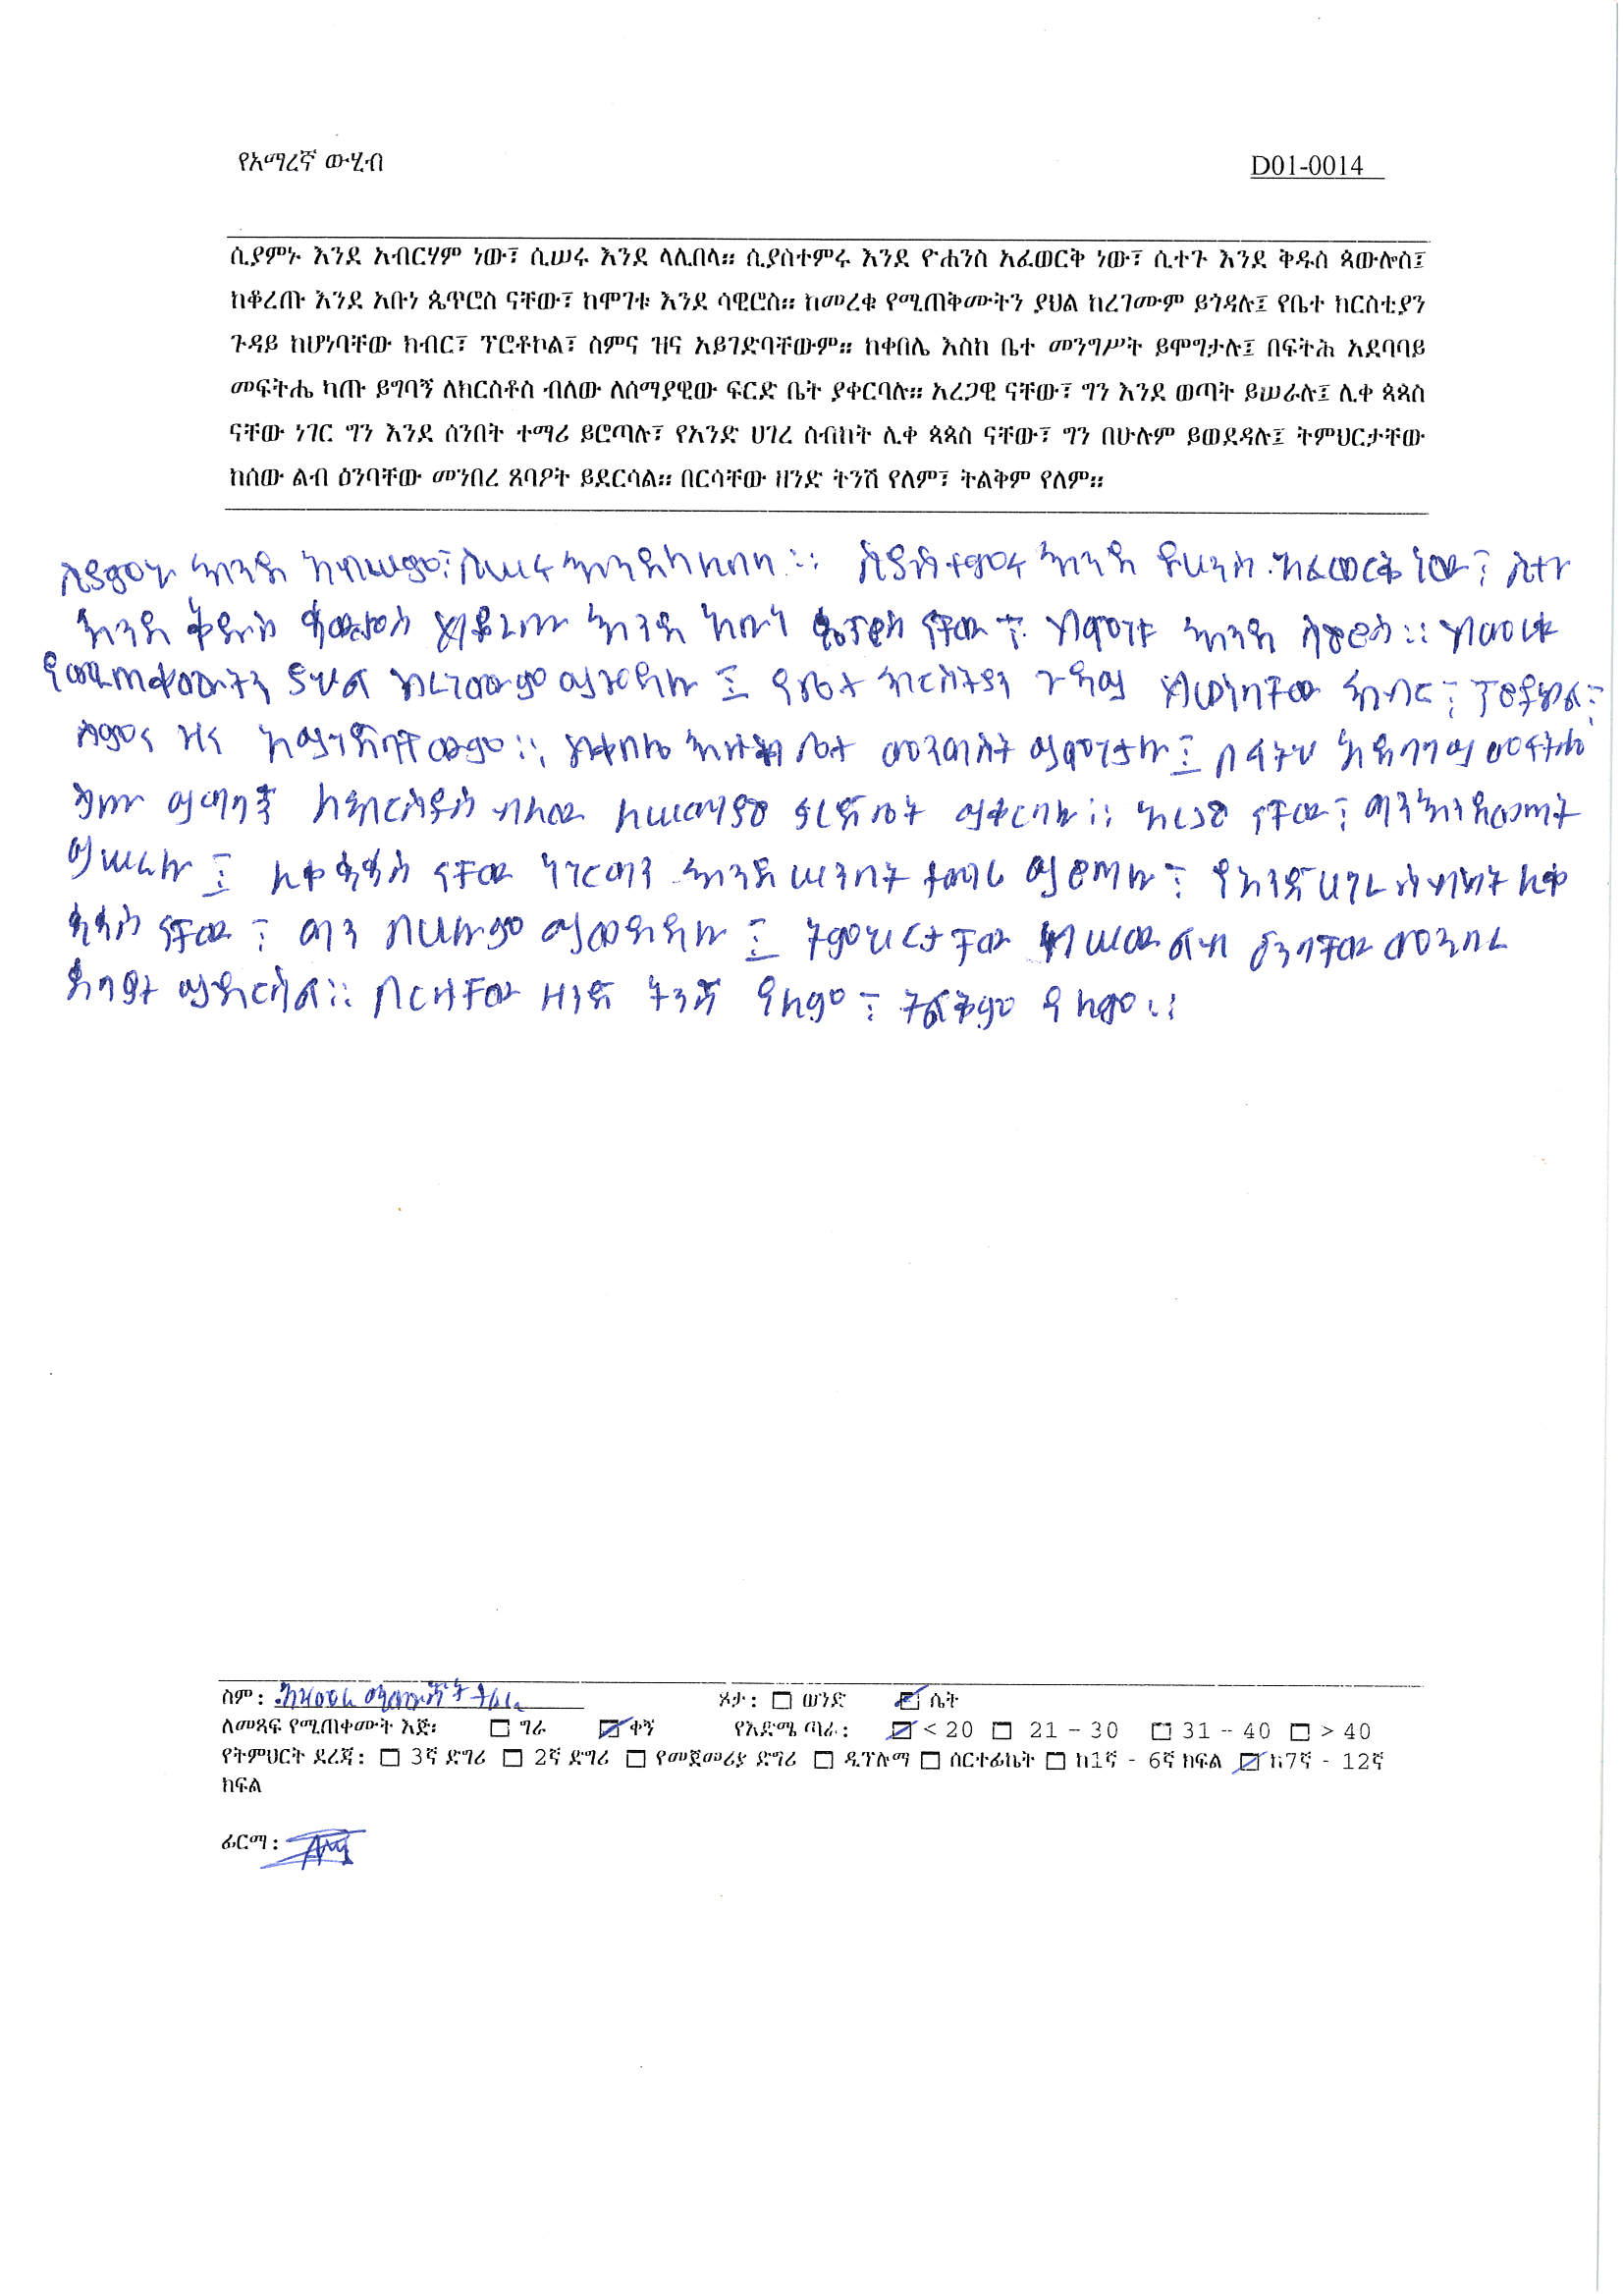 የአማረኛ ውሂብ D01-0014
ሲያምኑ እንደ አብርሃም ነው፣ ሲሠሩ እንደ ላሊበላ። ሲያስተምሩ እንደ ዮሐንስ አፈወርቅ ነው፣ ሲተጉ እንደ ቅዱስ ጳውሎስ፤
ከቆረጡ እንደ አቡነ ጴጥሮስ ናቸው፣ ከሞገቱ እንደ ሳዊሮስ። ከመረቁ የሚጠቅሙትን ያህል ከረገሙም ይጎዳሉ፤ የቤተ ክርስቲያን
ጉዳይ ከሆነባቸው ክብር፣ ፕሮቶኮል፣ ስምና ዝና አይገድባቸውም። ከቀበሌ እስከ ቤተ መንግሥት ይሞግታሉ፤ በፍትሕ አደባባይ
መፍትሔ ካጡ ይግባኝ ለክርስቶስ ብለው ለሰማያዊው ፍርድ ቤት ያቀርባሉ። አረጋዊ ናቸው፣ ግን እንደ ወጣት ይሠራሉ፤ ሊቀ ጳጳስ
ናቸው ነገር ግን እንደ ሰንበት ተማሪ ይሮጣሉ፣ የአንድ ሀገረ ስብከት ሊቀ ጳጳስ ናቸው፣ ግን በሁሉም ይወደዳሉ፤ ትምህርታቸው
ከሰው ልብ ዕንባቸው መንበረ ጸባዖት ይደርሳል። በርሳቸው ዘንድ ትንሽ የለም፣ ትልቅም የለም።
ሲያምኑ እንደ አብሠም፣ ሲሠሩ እንደ ላሊበላ። ሲያስተምሩ እንደ ዮሀንስ አፈወርቅ ነው፣ ሲተጉ
እንደ ቅዱስ ጳውሎስ ከቆረጡ እንደ አቡነ ጴጥሮስ ናቸው፣ ከሞገቱ እንደ ሳዊሮስ። ከመረቁ
የሚጠቀሙትን ያህል ከረገሙም ይጎዳሉ፤ የቤተ ክርስትያን ጉዳይ ከሆነባቸው ክብር፣ ፕሮቶኮል፣
ስምና ዝና አይገድባቸውም። ከቀበሌ እስከ ቤተ መንግስት ይሞገታሉ፤ በፍትህ አደባባይ መፍትሔ
ካጡ ይግባኝ ለክርስቶስ ብለው ለሠማያዊ ፍርድ ቤት ያቀርባሉ። አረጋዊ ናቸው፣ ግን እንደ ወጣት
ይሠራሉ፤ ሊቀ ጳጳስ ናቸው ነገር ግን እንደ ሠንበት ተማሪ ይሮጣሉ፣ የአንድ ሀገረ ስብከት ሊቀ
ጳጳስ ናቸው፣ ግን በሁሉም ይወደዳሉ፤ ትምህርታቸው ከሠው ልብ ዕንባቸው መንበረ
ጸባዖት ይደርሳል። በርሳቸው ዘንድ ትንሽ የለም፣ ትልቅም የለም።
ስም: ጾታ: ወንድ ሴት
ለመጻፍ የሚጠቀሙት እጅ፡ ግራ ቀኝ የእድሜ ጣራ: < 20 21 - 30 31 - 40 > 40
የትምህርት ደረጃ: 3ኛ ድግሪ 2ኛ ድግሪ የመጀመሪያ ድግሪ ዲፕሎማ ሰርተፊኬት ከ1ኛ - 6ኛ ክፍል ከ7ኛ - 12ኛ
ክፍል
ፊርማ: